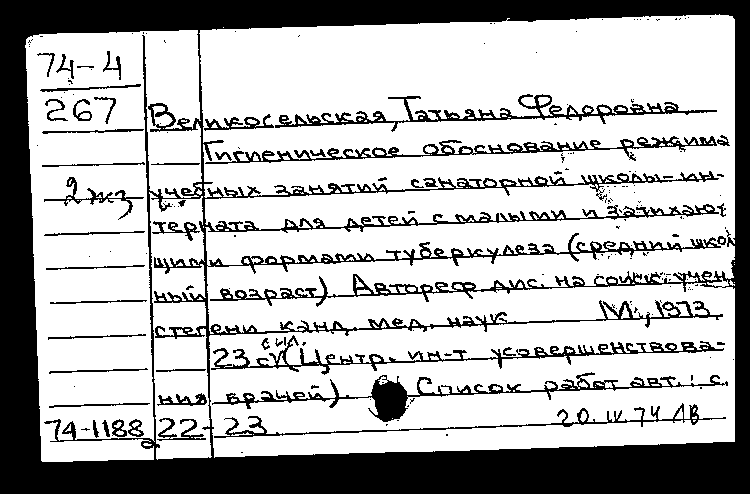 74-4
267
Великосельская, Татьяна Федоровна.
Гигиеническое обоснование режима
2 жз учебных занятий санаторной школы-ин-
терната для детей с малыми и затихаю-
щими формами туберкулеза (средний школь
ный возраст). Автореф. дис. на соиск. учен.
степени канд. мед. наук М., 1973.
с ил.
23 с. (Центр. ин-т усовершенствова-
ния врачей). Список работ авт.: с.
74-1188 22-23. 20.IV.74 ЛВ